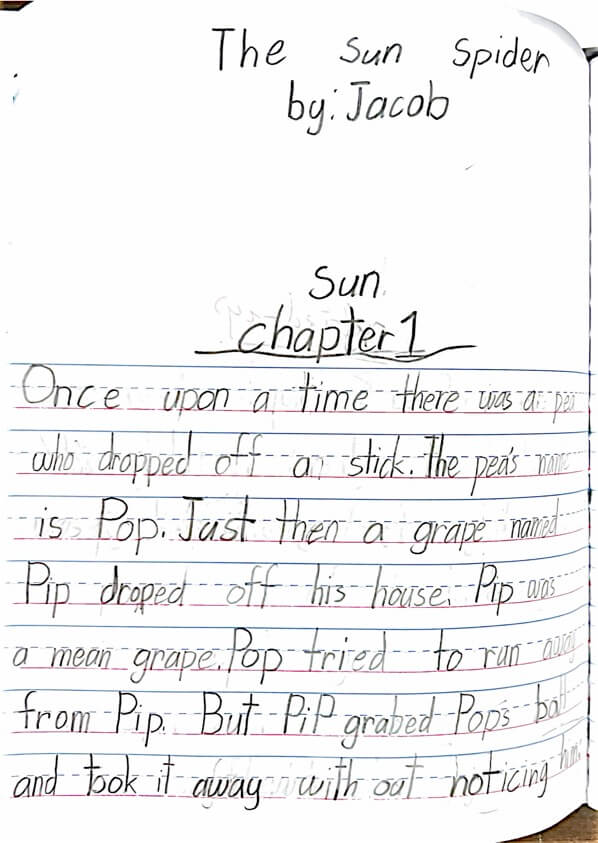 The Sun Spider
by: Jacob
Sun
chapter 1
Once upon a time there was a pea
who dropped off a stick. The pea's name
is Pop. Just then a grape named
Pip droped off his house. Pip was
a mean grape. Pop tried to run away
from Pip. But PiP grabed Pop's ball
and took it away with out noticing him.